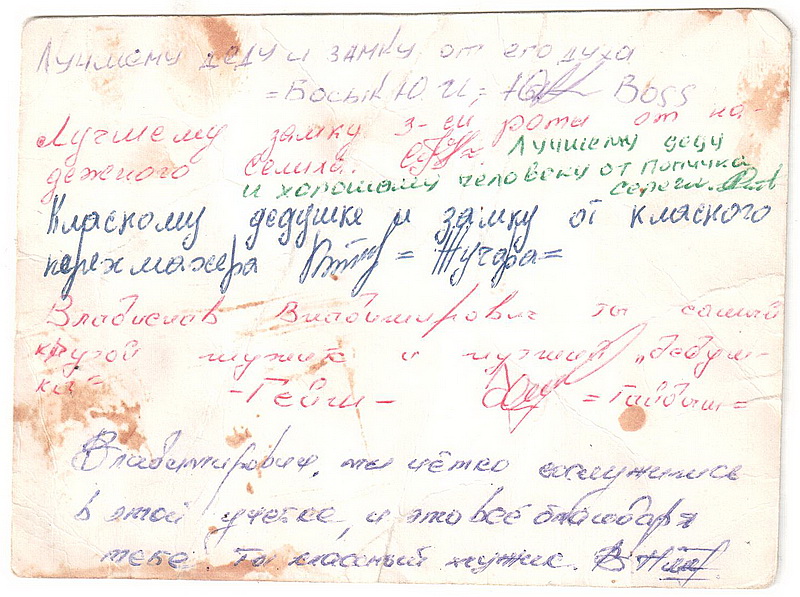 Лучшему деду и замку от его духа
=Босык Ю. И.= Boss
Лучшему замку 3-ей роты от на-
дежного Лучшему деду
и хорошему человеку от попичка
сереги.
Класному дедушке и замку от класного
перехмахера = Жучара=
Владислав Владимирович ты самый
крутой мужик и "дедуш-
ка" -Гейш- =Гайдыш=
Владимирович, ты чётко
в этой учебке, и это всё благодаря
тебе. Ты классный мужик.